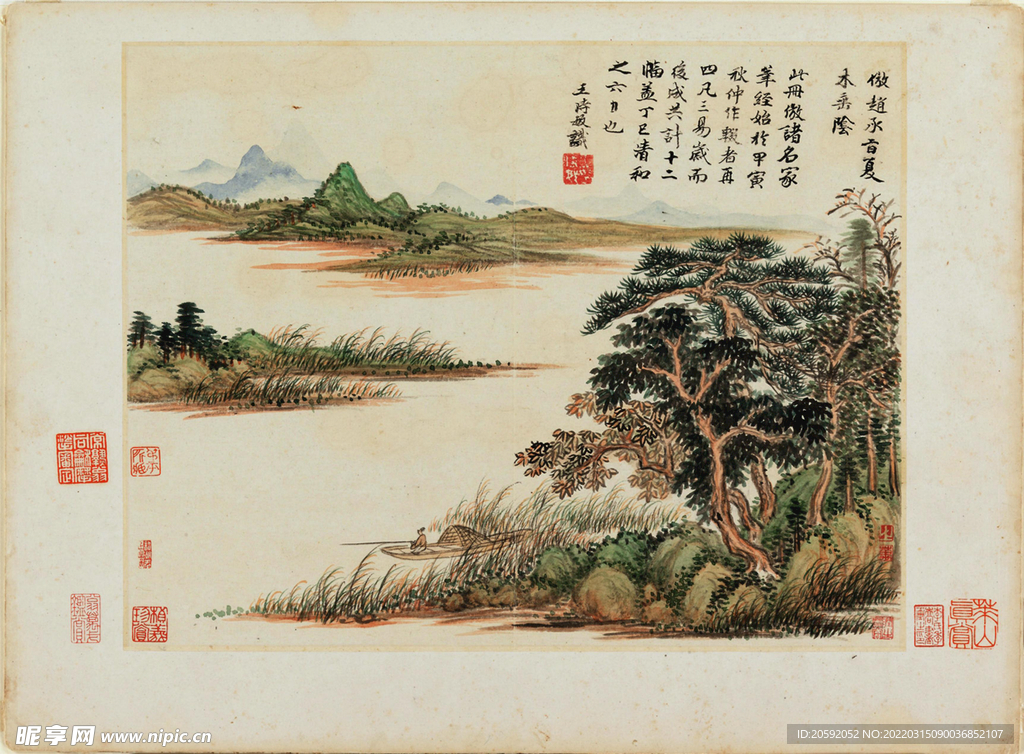 倣趙承旨夏
木垂陰
此冊倣諸名家
筆經始於甲寅
秋仲作輟者再
四凡三易歲而
後成共計十二
幅盖丁巳清和
之六日也
王時敏識
昵享网 www.nipic.cn
ID:20592052 NO:20220315090036852107